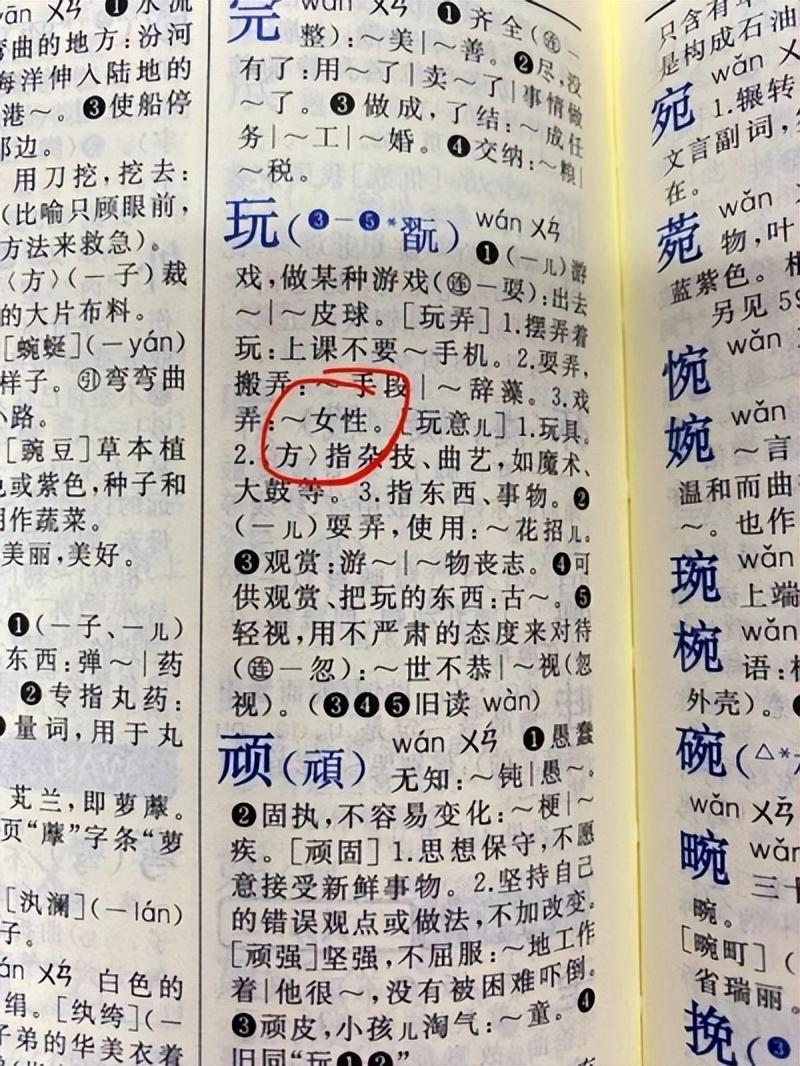 wān ㄨㄢ ❶水流
弯曲的地方:汾河
海洋伸入陆地的
港～。❸使船停
那边。
用刀挖,挖去:
(比喻只顾眼前,
方法来救急)。
〈方〉(一子)裁
的大片布料。
[蜿蜒](－yán)
样子。㊁弯弯曲
小路。
[豌豆]草本植
色或紫色,种子和
用作蔬菜。
美丽,美好。
❶(一子、一儿)
东西:弹～|药
❷专指丸药:
量词,用于丸
芄兰,即萝藦。
页“藦”字条“萝
[汍澜](－lán)
子。
ㄨㄢˊ 白色的
绢。[纨绔](－
子弟的华美衣着
完 wán ㄨㄢˊ ❶齐全(㊣－
整):～美|～善。❷尽,没
有了:用～了|卖～了|事情做
～了。❸做成,了结:～成任
务|～工|～婚。❹交纳:～粮|
～税。
玩(❸－❺*翫) wán ㄨㄢˊ
❶(一儿)游
戏,做某种游戏(㊣－耍):出去
～|～皮球。[玩弄]1.摆弄着
玩:上课不要～手机。2.耍弄,
搬弄:～手段|～辞藻。3.戏
弄:～女性。[玩意儿]1.玩具。
2.〈方〉指杂技、曲艺,如魔术、
大鼓等。3.指东西、事物。❷
(一儿)耍弄,使用:～花招儿。
❸观赏:游～|～物丧志。❹可
供观赏、把玩的东西:古～。❺
轻视,用不严肃的态度来对待
(㊣－忽):～世不恭|～视(忽
视)。(❸❹❺旧读 wàn)
顽(頑) wán ㄨㄢˊ ❶愚蠢
无知:～钝|愚～。
❷固执,不容易变化:～梗|～
疾。[顽固]1.思想保守,不愿
意接受新鲜事物。2.坚持自己
的错误观点或做法,不加改变。
[顽强]坚强,不屈服:～地工作
着|他很～,没有被困难吓倒。
❸顽皮,小孩儿淘气:～童。❹
旧同“玩❶❷”
只含有
是构成石油
宛 wǎn
1.辗转
文言副词,
在。
菀 wǎn
物,叶
蓝紫色。根
另见 59
惋 wǎn
婉 wǎn
～言
温和而曲
～。也作
琬 wǎn
上端
椀 wǎn
语:
外壳)。
碗(△*
wǎn ㄨㄢˇ
畹 wǎn
三十
畹。
[畹町]
省瑞丽。
挽(❸